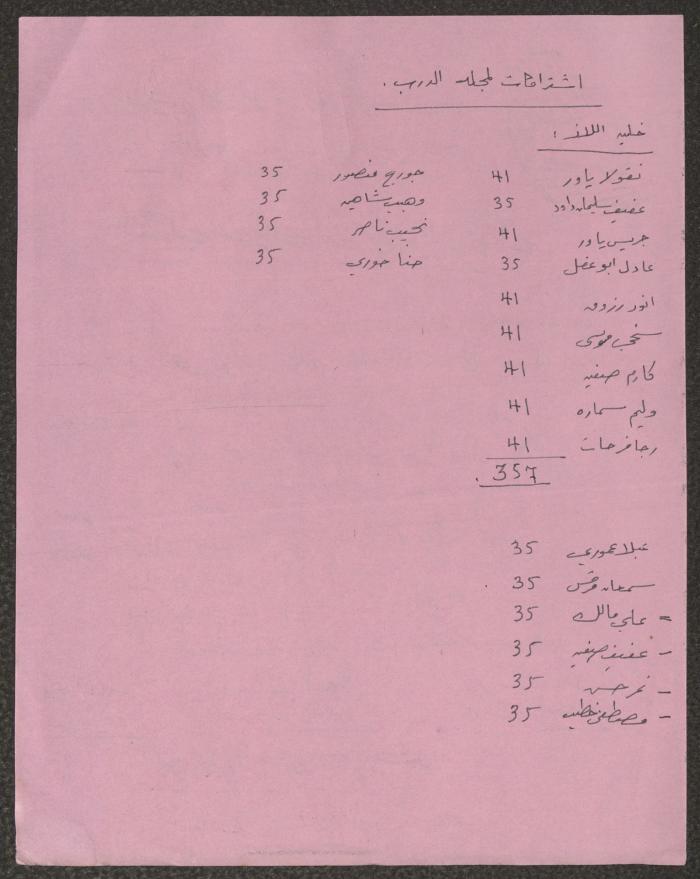 اشتراكات لمجلة الدرب .
خلية اللاز :
نقولا ياور 41 جورج منصور 35
عفيف سليمان داود 35 وهيب شاهين 35
جريس ياور 41 نجيب ناصر 35
عادل ابو عقل 35 حنا خوري 35
انور رزوق 41
موسى 41
كارم صفيه 41
وليم سماره 41
رجا فرحات 41
357 .
عبلا عموري 35
سمعان مرقس 35
= علي مالك 35
- عفيف صفيه 35
- نمر حسن 35
- مصطفى خطيب 35